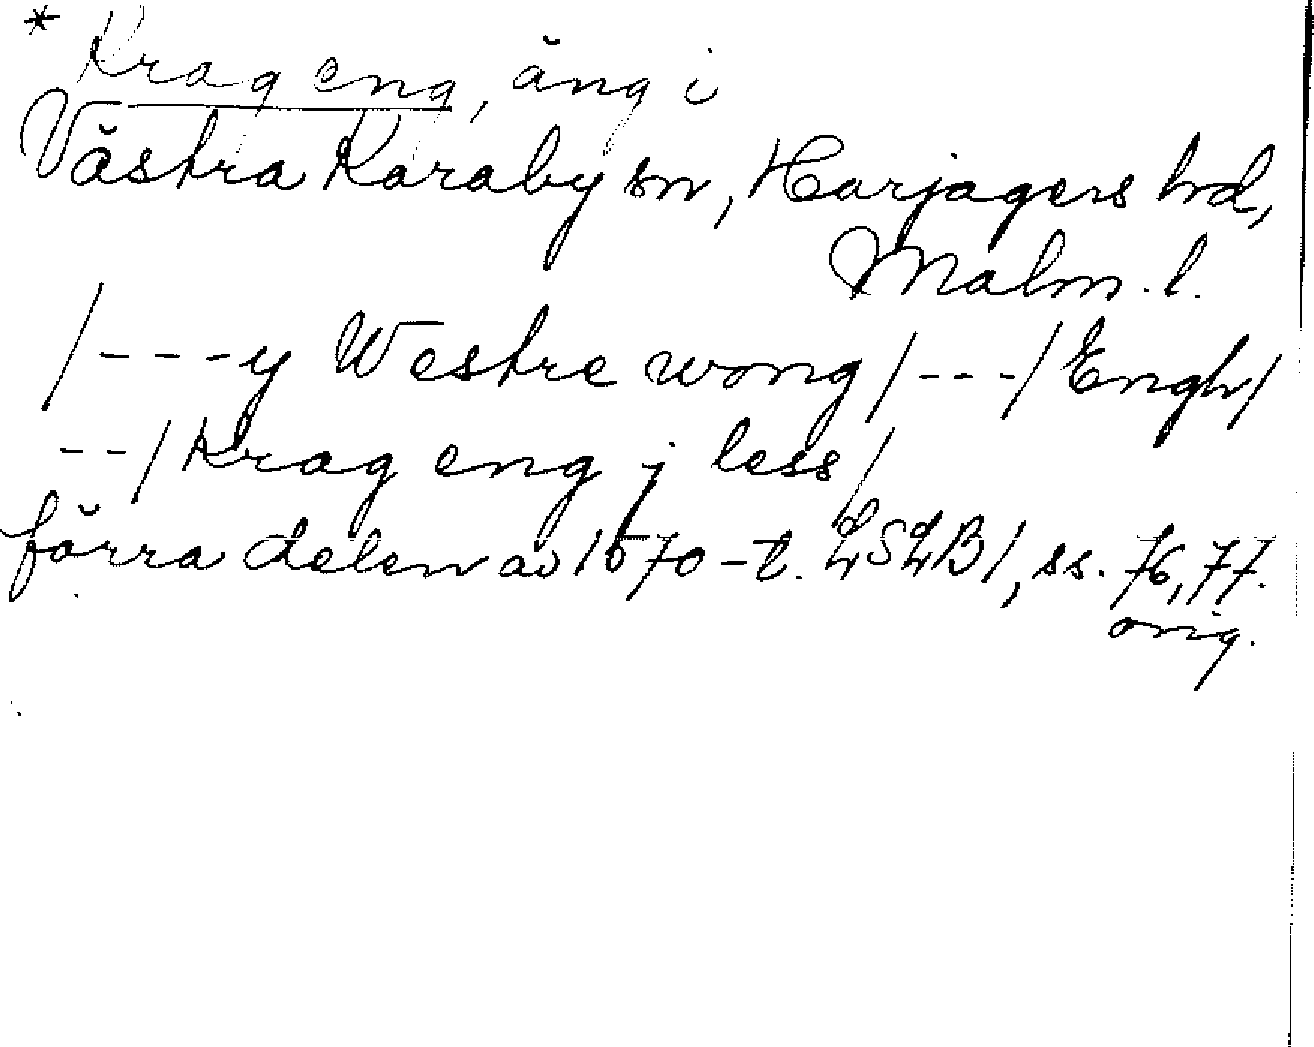 * Krag eng, äng i
Västra Karaby sn, Harjagers hd,
Malm. l.
/---y Westre wong/---/Engh/
--/Krag eng j less/
förra delen av 1570-t. LSLB1, ss. 76, 77.
orig.